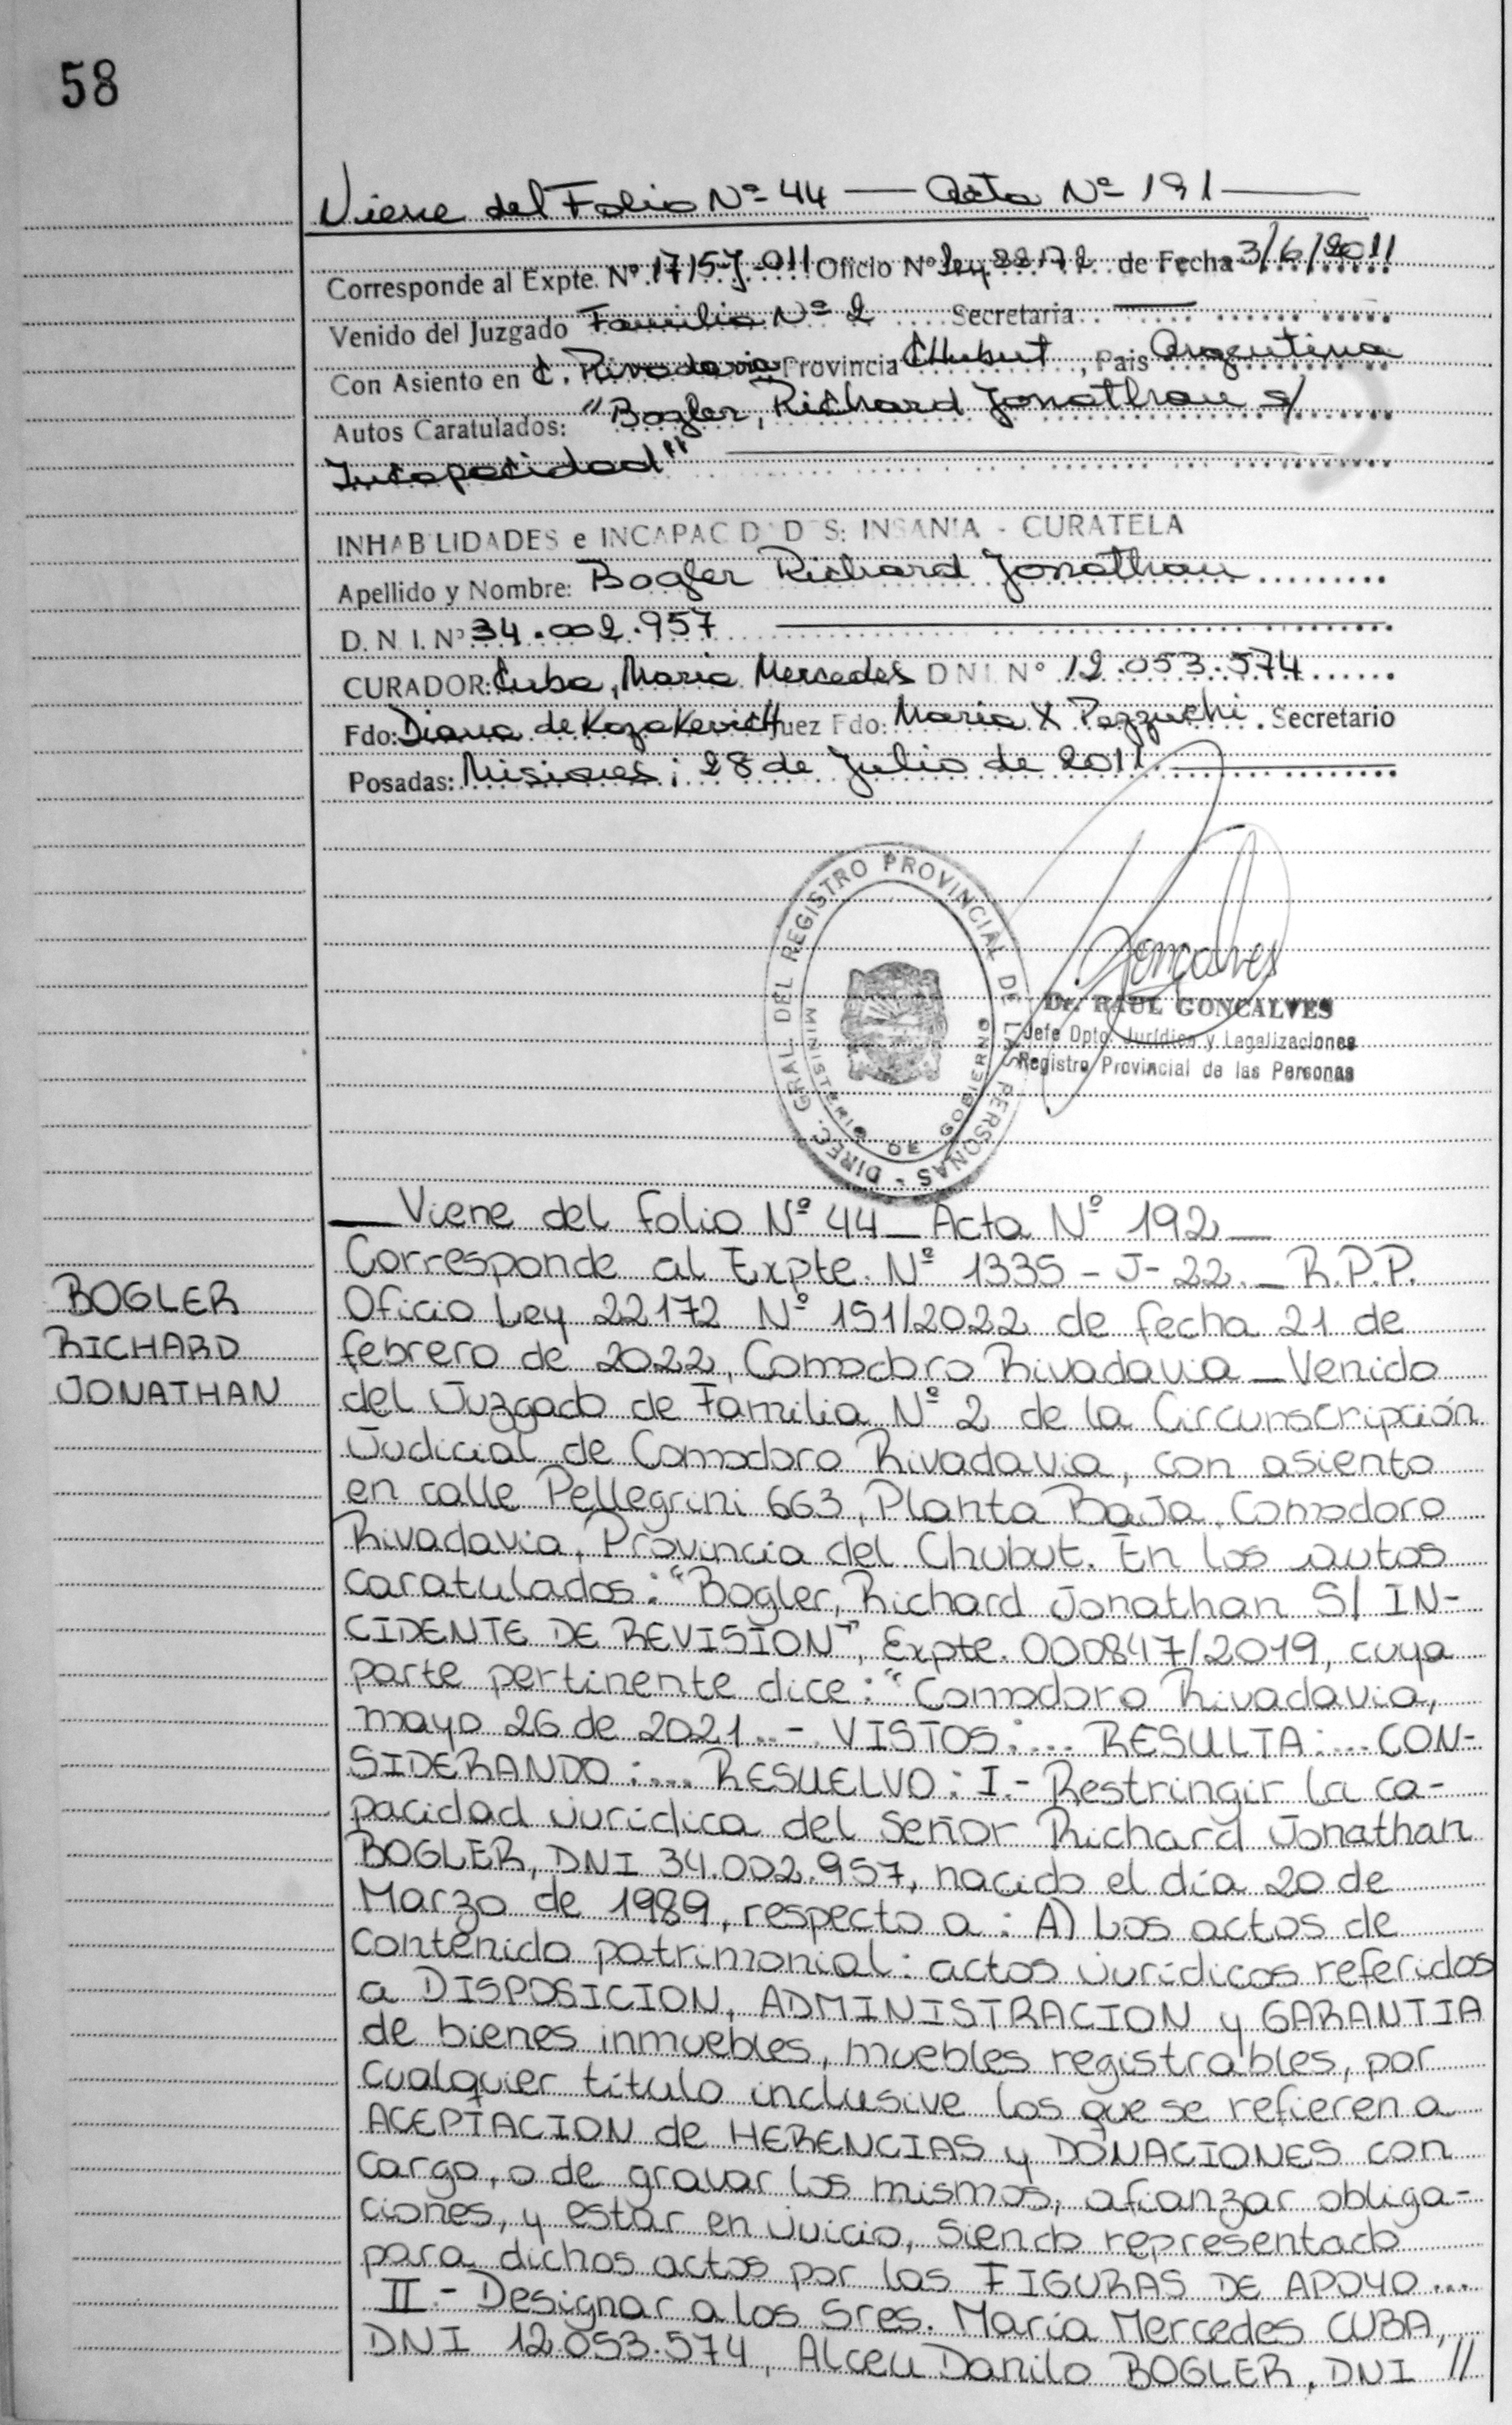 58
Viene del Folio Nº 44 — Acta Nº 191
Corresponde al Expte. Nº 17157-011 Oficio Nº Ley 22172 de Fecha 3/6/2011
Venido del Juzgado Familia Nº 2 Secretaria: —
Con Asiento en C. Rivadavia Provincia CHubut, Pais Argentina
Autos Caratulados: "Bogler, Richard Jonathan s/
Incapacidad"
INHABILIDADES e INCAPACIDADES: INSANIA - CURATELA
Apellido y Nombre: Bogler Richard Jonathan
D. N. I. Nº 34.002.957
CURADOR: Cuba, Maria Mercedes DNI Nº 12.053.574
Fdo: Diana de Kozakevich Juez Fdo: Maria X Pezzuchi. Secretario
Posadas: Misiones; 28 de Julio de 2011
DIREC. GRAL. DEL REGISTRO PROVINCIAL DE LAS PERSONAS -
MINISTERIO DE GOBIERNO
Gonçalves
Dr. RAUL GONCALVES
Jefe Dpto. Jurídico y Legalizaciones
Registro Provincial de las Personas
BOGLER
RICHARD
JONATHAN
— Viene del folio Nº 44 — Acta Nº 192 —
Corresponde al Expte. Nº 1335 - J - 22. — R.P.P.
Oficio Ley 22172 Nº 151/2022 de fecha 21 de
febrero de 2022, Comodoro Rivadavia — Venido
del Juzgado de Familia Nº 2 de la Circunscripción
Judicial de Comodoro Rivadavia, con asiento
en calle Pellegrini 663, Planta Baja, Comodoro
Rivadavia, Provincia del Chubut. En los autos
caratulados: "Bogler, Richard Jonathan S/ IN-
CIDENTE DE REVISIÓN", Expte. 000847/2019, cuya
parte pertinente dice: "Comodoro Rivadavia,
mayo 26 de 2021.- VISTOS:... RESULTA:... CON-
SIDERANDO:... RESUELVO: I.- Restringir la ca-
pacidad jurídica del Señor Richard Jonathan
BOGLER, DNI 34.002.957, nacido el día 20 de
Marzo de 1989, respecto a: A) Los actos de
contenido patrimonial: actos jurídicos referidos
a DISPOSICION, ADMINISTRACION y GARANTIA
de bienes inmuebles, muebles registrables, por
cualquier título inclusive los que se refieren a
ACEPTACION de HERENCIAS y DONACIONES con
cargo, o de gravar los mismos, afianzar obliga-
ciones, y estar en juicio, siendo representado
para dichos actos por las FIGURAS DE APOYO...
II.- Designar a los Sres. María Mercedes CUBA,
DNI 12.053.574, Alceu Danilo BOGLER, DNI //